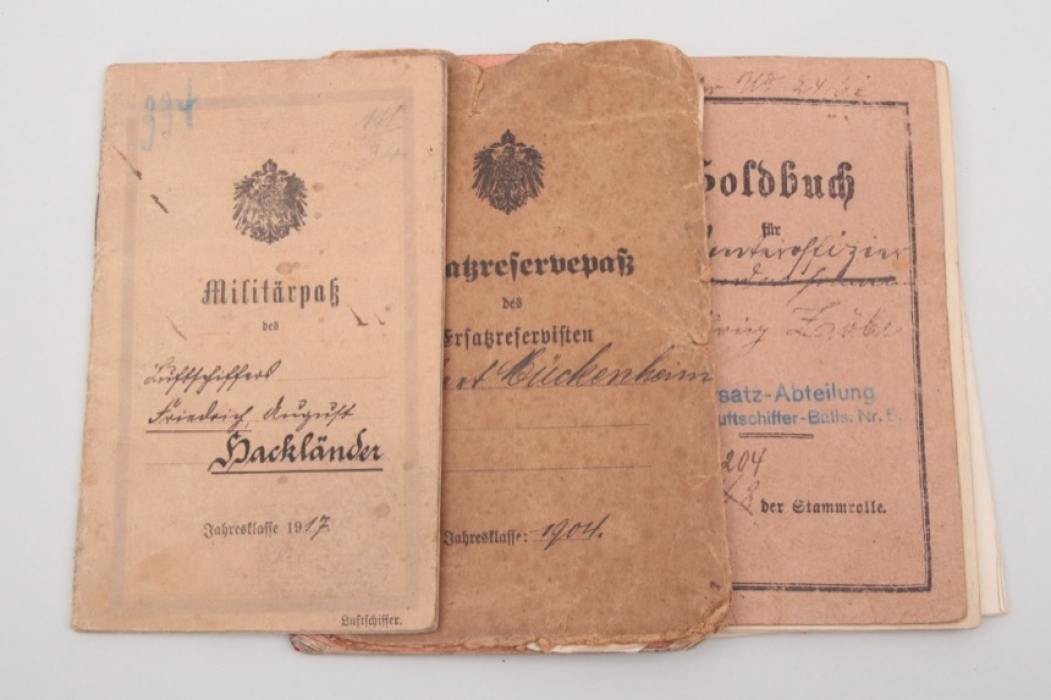 394
Militärpaß
des
Luftschiffers
Friedrich, August
Hackländer
Jahresklasse 1917
Luftschiffer.
atzreservepaß
des
Ersatzreservisten
Mückenheim
Jahresklasse: 1904.
Soldbuch
für
Unteroffizier
satz-Abteilung
uftschiffer-Batls. Nr. 5.
204
8 der Stammrolle.